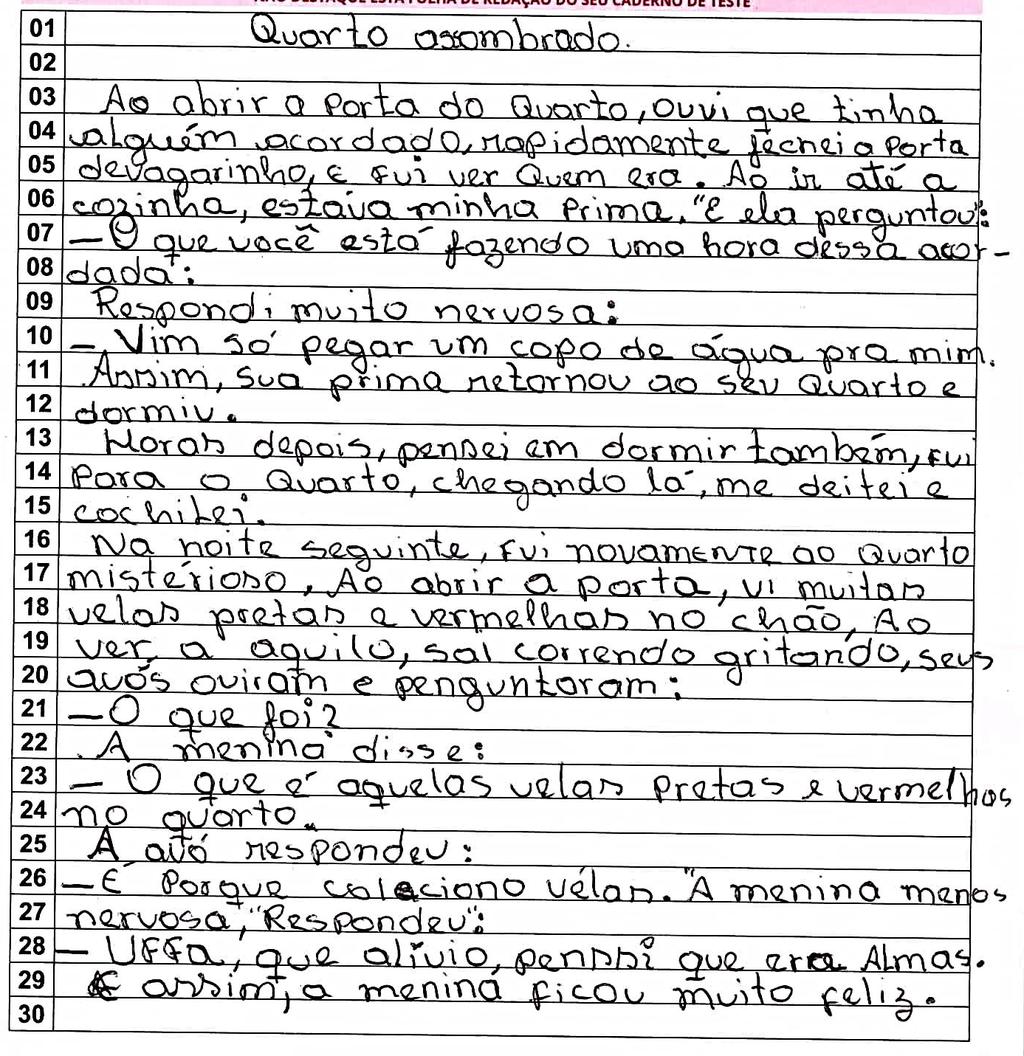 NÃO DESTAQUE ESTA FOLHA DE REDAÇÃO DO SEU CADERNO DE TESTE
01 Quarto assombrado.
02
03 Ao abrir a Porta do Quarto, ouvi que tinha
04 alguém acordado, rapidamente fechei a Porta
05 devagarinho, e fui ver Quem era. Ao ir até a
06 cozinha, estava minha Prima. "E ela perguntou":
07 — O que você está fazendo uma hora dessa acor-
08 dada":
09 Respondi muito nervosa:
10 — Vim só pegar um copo de água pra mim.
11 Assim, sua prima retornou ao seu Quarto e
12 dormiu.
13 Horas depois, pensei em dormir também, fui
14 Para o Quarto, chegando lá, me deitei e
15 cochilei.
16 Na noite seguinte, fui novamente ao Quarto
17 mistérioso, Ao abrir a porta, vi muitas
18 velas pretas e vermelhas no chão, Ao
19 ver a aquilo, saí correndo gritando, seus
20 avós ouviram e penguntoram:
21 — O que foi?
22 A menina disse:
23 — O que é aquelas velas Pretas e vermelhas
24 no quarto.
25 A avó respondeu:
26 — É Porque coleciono vélas. "A menina menos
27 nervosa, "Respondeu":
28 — UFFa, que alívio, penssei que era Almas.
29 E assim, a menina ficou muito feliz.
30